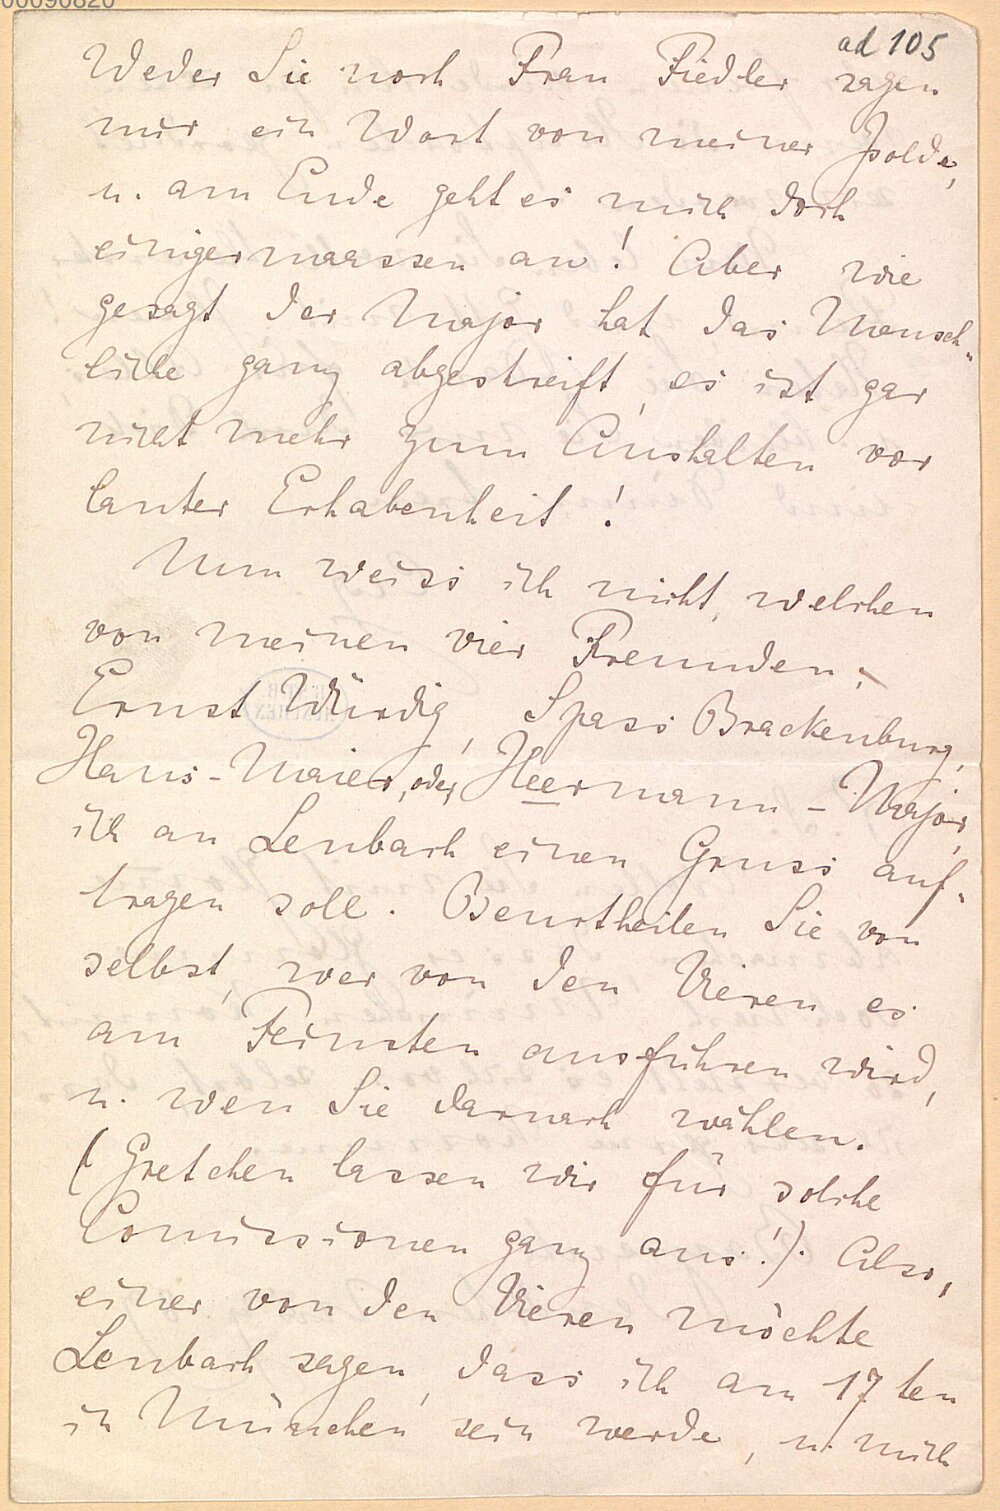 00090820
ad 105
Weder Sie noch Frau Fiedler sagen
mir ein Wort von meiner Isolde,
u. am Ende geht es mich doch
einigermaassen an! Aber wie
gesagt der Major hat das Mensch-
liche ganz abgestreift, es ist gar
nicht mehr zum Aushalten vor
lauter Erhabenheit!
Nun weiss ich nicht, welchen
von meinen vier Freunden,
Ernst Würdig, Spass Brackenburg,
Hans-Maier, oder, Heermann-Major,
ich an Lenbach einen Gruss auf-
tragen soll. Beurtheilen Sie von
selbst, wer von den Vieren es
am Feinsten ausführen wird,
u. wen Sie darnach wählen.
(Gretchen lassen wir für solche
Comissionen ganz aus!). Also,
einer von den Vieren möchte
Lenbach sagen, dass ich am 17ten
in München sein werde, u. mich